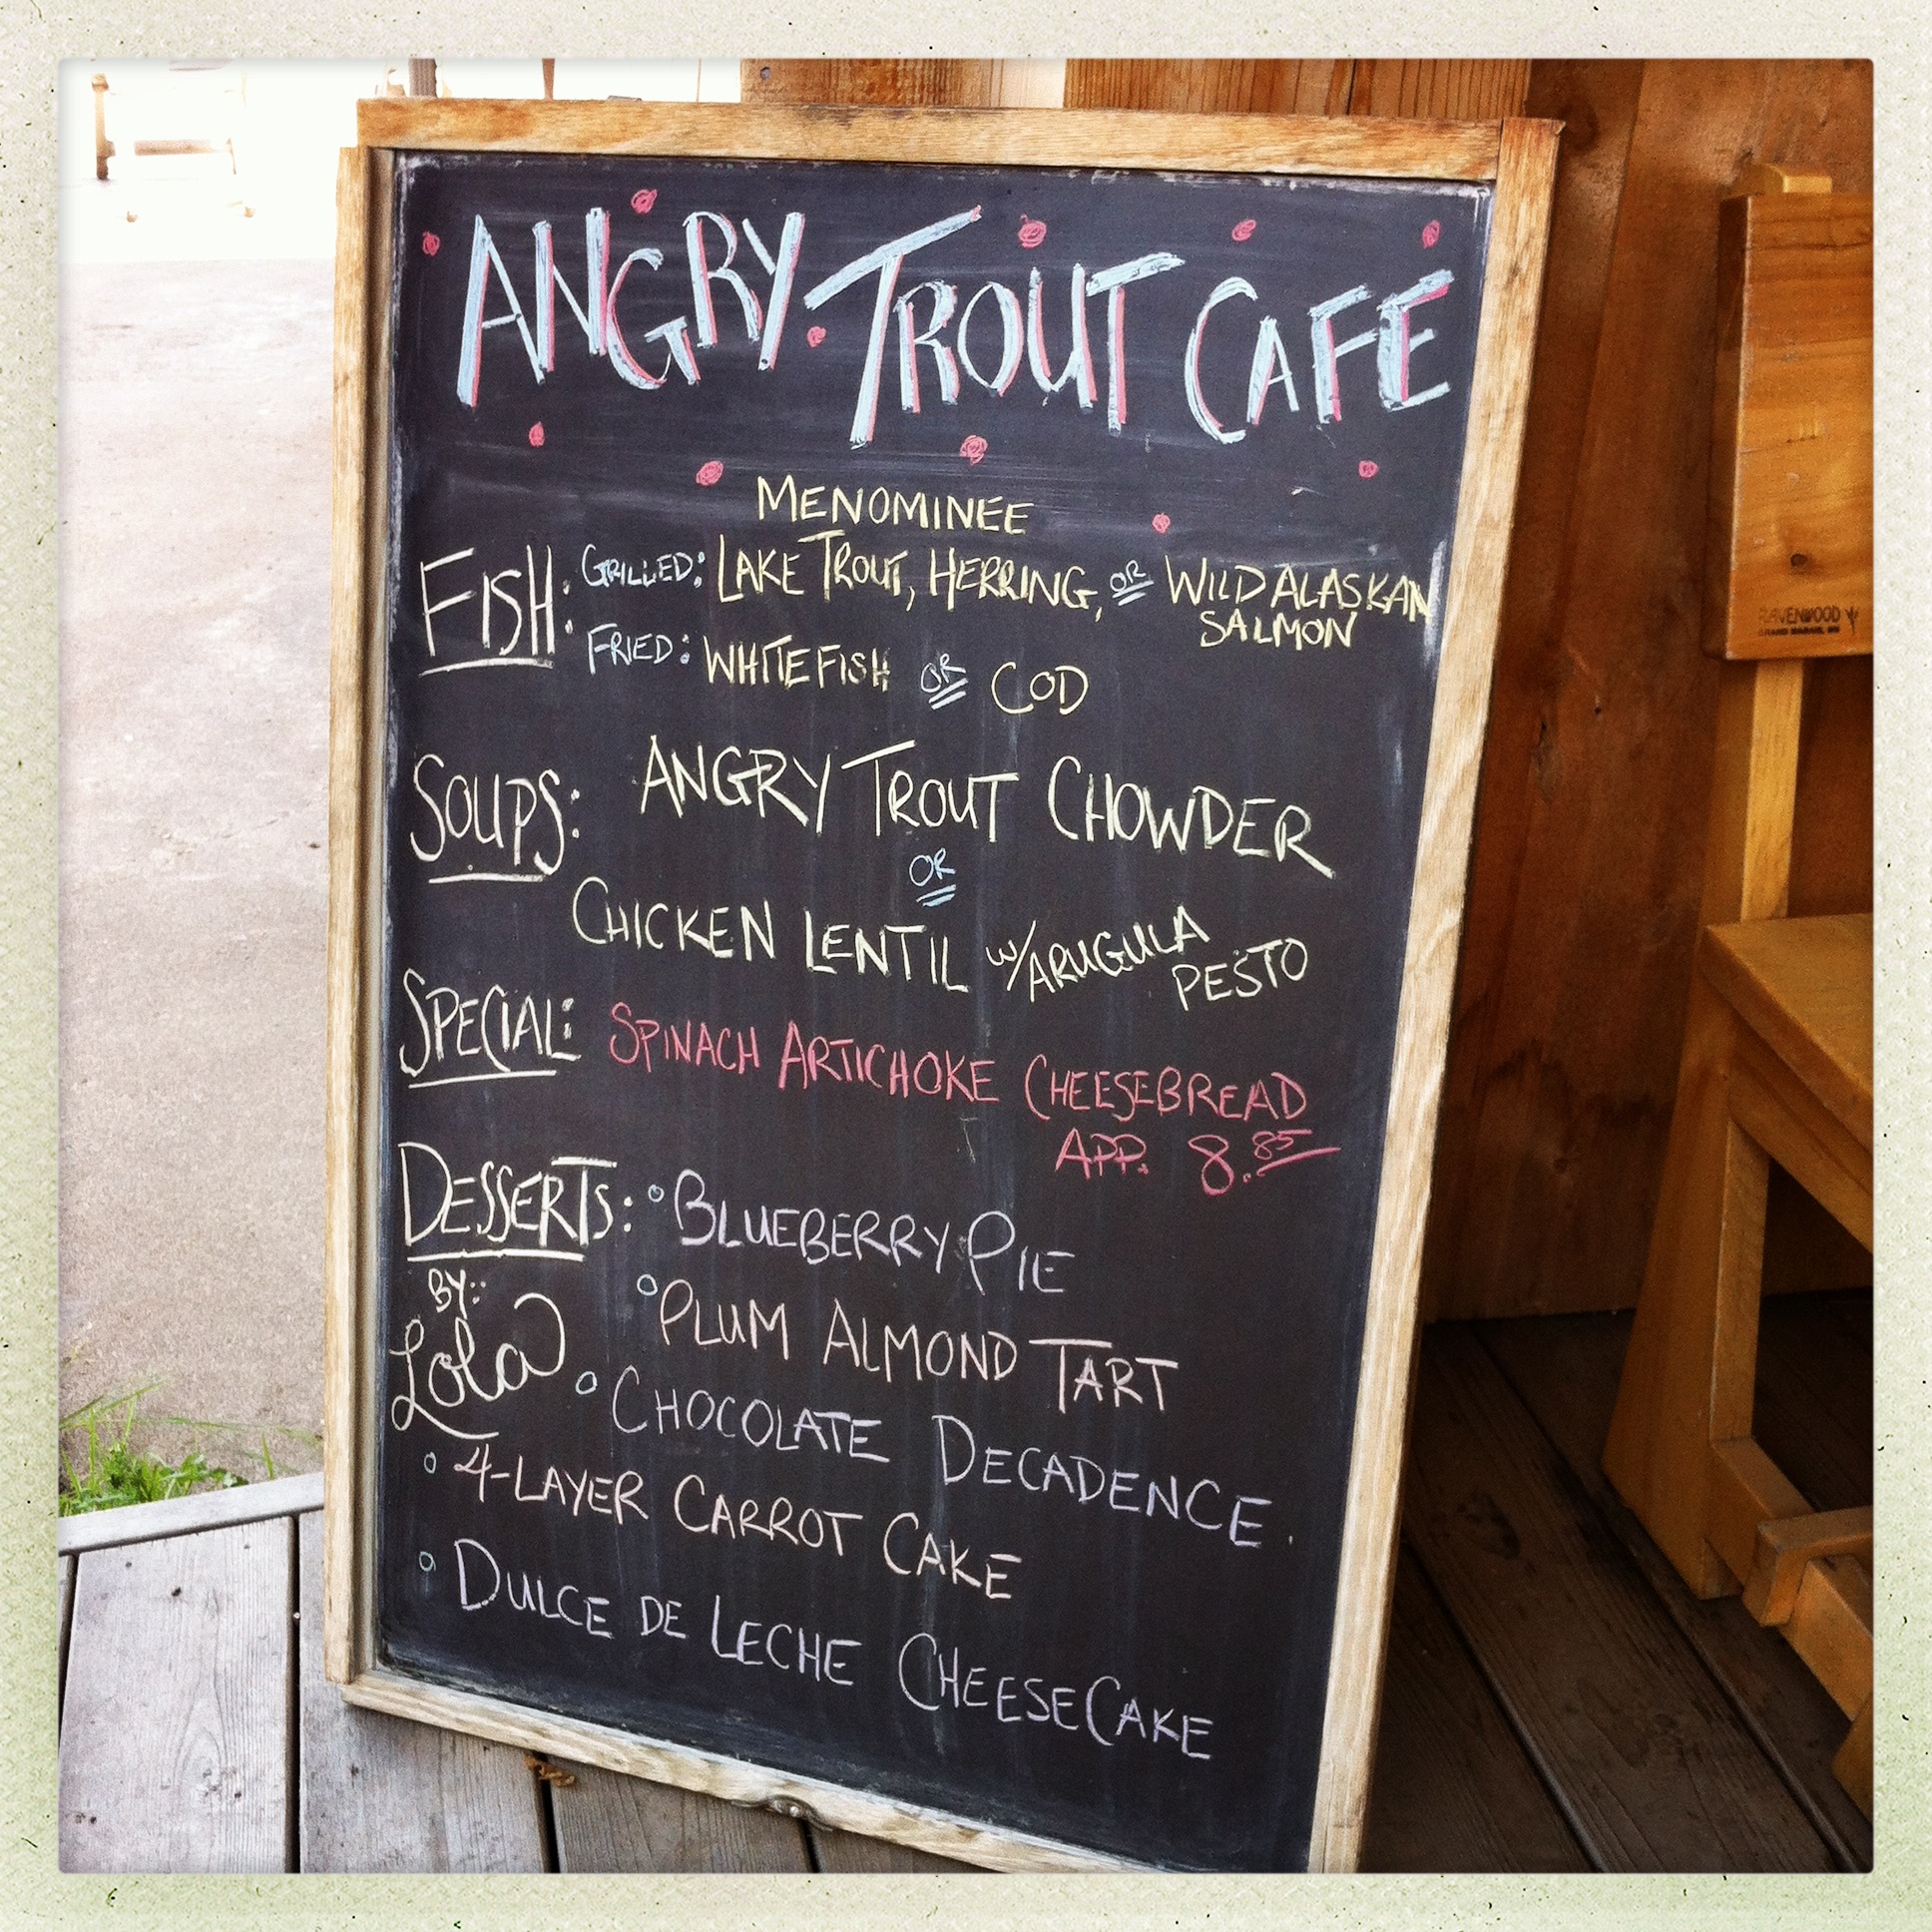 ANGRY TROUT CAFE
MENOMINEE
FISH: GRILLED: LAKE TROUT, HERRING, OR WILD ALASKAN
SALMON
FRIED: WHITEFISH OR COD
SOUPS: ANGRY TROUT CHOWDER
OR
CHICKEN LENTIL W/ ARUGULA
PESTO
SPECIAL: SPINACH ARTICHOKE CHEESEBREAD
APP. 8.85
DESSERTS: BLUEBERRY PIE
BY:
Lola
PLUM ALMOND TART
CHOCOLATE DECADENCE.
4-LAYER CARROT CAKE
DULCE DE LECHE CHEESECAKE
RAVENWOOD
GRAND MARAIS, MN